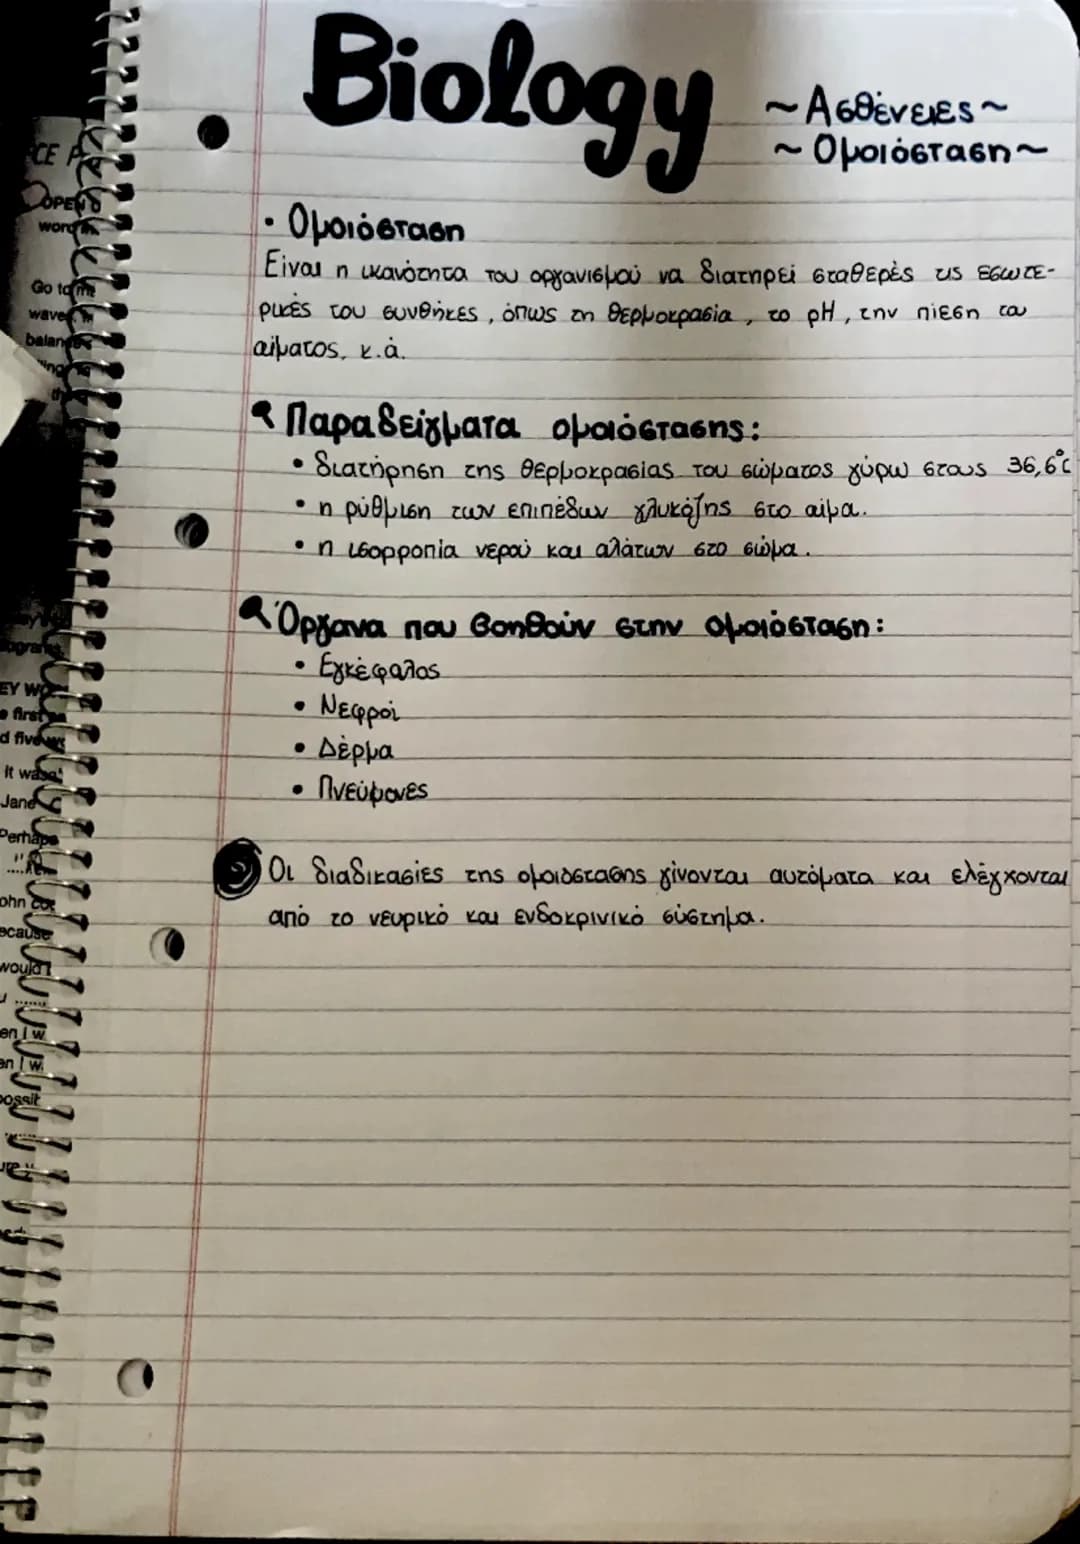 Biology
~Ασθένειες~
~Ομοιόσταση~
• Ομοιόσταση
Είναι η ικανότητα του οργανισμού να διατηρεί σταθερές τις εσωτε-
ρικές του συνθήκες, όπως τη θερμοκρασία, το pH, την πίεση του
αίματος, κ.ά.
Παραδείγματα ομοιόστασης:
• διατήρηση της θερμοκρασίας του σώματος γύρω στους 36,6°C
• η ρύθμιση των επιπέδων γλυκόζης στο αίμα.
• η ισορροπία νερού και αλάτων στο σώμα.
Όργανα που βοηθούν στην ομοιόσταση:
• Εγκέφαλος
• Νεφροί
• Δέρμα
• Πνεύμονες
Οι διαδικασίες της ομοιόστασης γίνονται αυτόματα και ελέγχονται
από το νευρικό και ενδοκρινικό σύστημα.
CE
OPEN
Go to
wave
balan
EY
first
d five
It was
Jane
Perhaps
ohn
ecause
would
en I w
an I w
possib